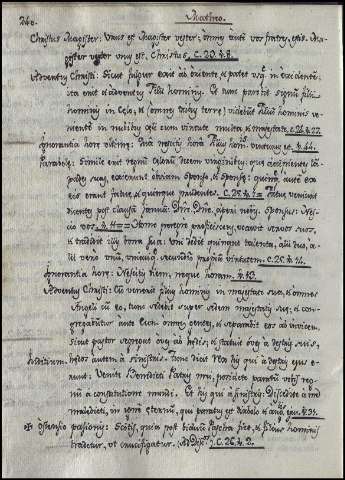 240. Matheo.
Christus Magister: Unus est Magister vester; omnes autē vos fratres estis. Ma-
gister vester unus est, Christus. C. 23. v. 8.
Adventus Christi: Sicut fulgur exit ab oriente, et patet usq. in occidentē:
ita erit et adventus Filii hominis. Et tunc parebit signum filii
hominis in celo, et (omnes tribus terre) videbūt Filium hominis ve-
nientē in nubibus celi cum virtute multa, et majestate. C. 24.
Ignorantia hore Quia nescitis hora Filius hominis venturus est. v. 44.
Parabola: Simile erit regnum celorum decem virginibus: que accipientes lā-
pades suas, exierunt obviam sponso, et sponse: quinque autē ex
eis erant fatue, et quinque prudentes. C. 25. v. 1. Fatue veniunt
dicentes post clausā januā: Dne, Dne, aperi nobis. Sponsus: Nes-
cio vos. Homo peregre proficiscens, vocavit servos suos,
et tradidit illis bona sua. Uni dedit quinque talenta, alii duo, a-
lii vero unū, unicuiq. secundū propriā virtutem. C. 25. v. 14.
Ignorantia hore: Nescitis diem, neque horam. v. 13.
Adventus Christi: Cū venerit filius hominis in majestate sua, et omnes
Angeli cū eo, tunc sedebit super sedem majestatis sue; et con-
gregabūtur ante eum omnes gentes, et separabit eos ab invicem,
sicut pastor segregat oves ab hedis; et statuet oves a dextris suis,
hedos autem a sinistris. Tunc dicet Rex his qui a dextris ejus e-
runt: Venite Benedicti Patris mei, posidete paratū vobis reg-
nū a constitutione mundi. Et his qui a sinistris: Discedite a me
maledicti, in ignē eternū, qui paratus est diabolo et angelis ejus. v. 34.
ostensio pasionis: Scitis, quia post biduū Pascha fiet, et filius hominis
tradetur, ut crucifigatur. C. 26. v. 2.